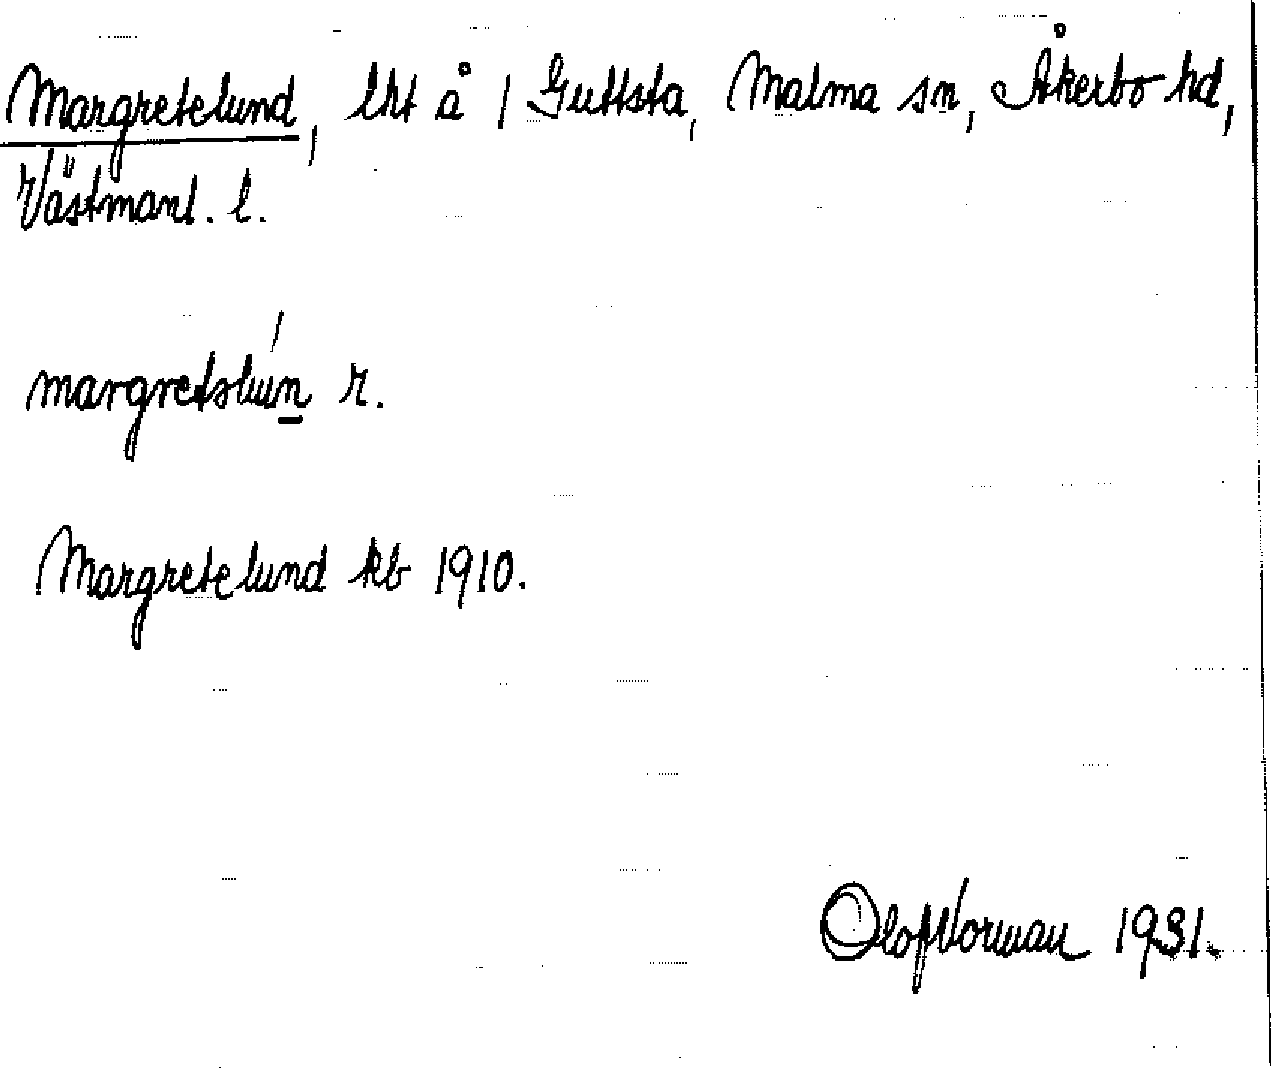 Margretelund, lht å 1 Guttsta, Malma sn, Åkerbo hd,
Västmanl. l.
margretslún r.
Margretelund kb 1910.
Olof Norman 1931.